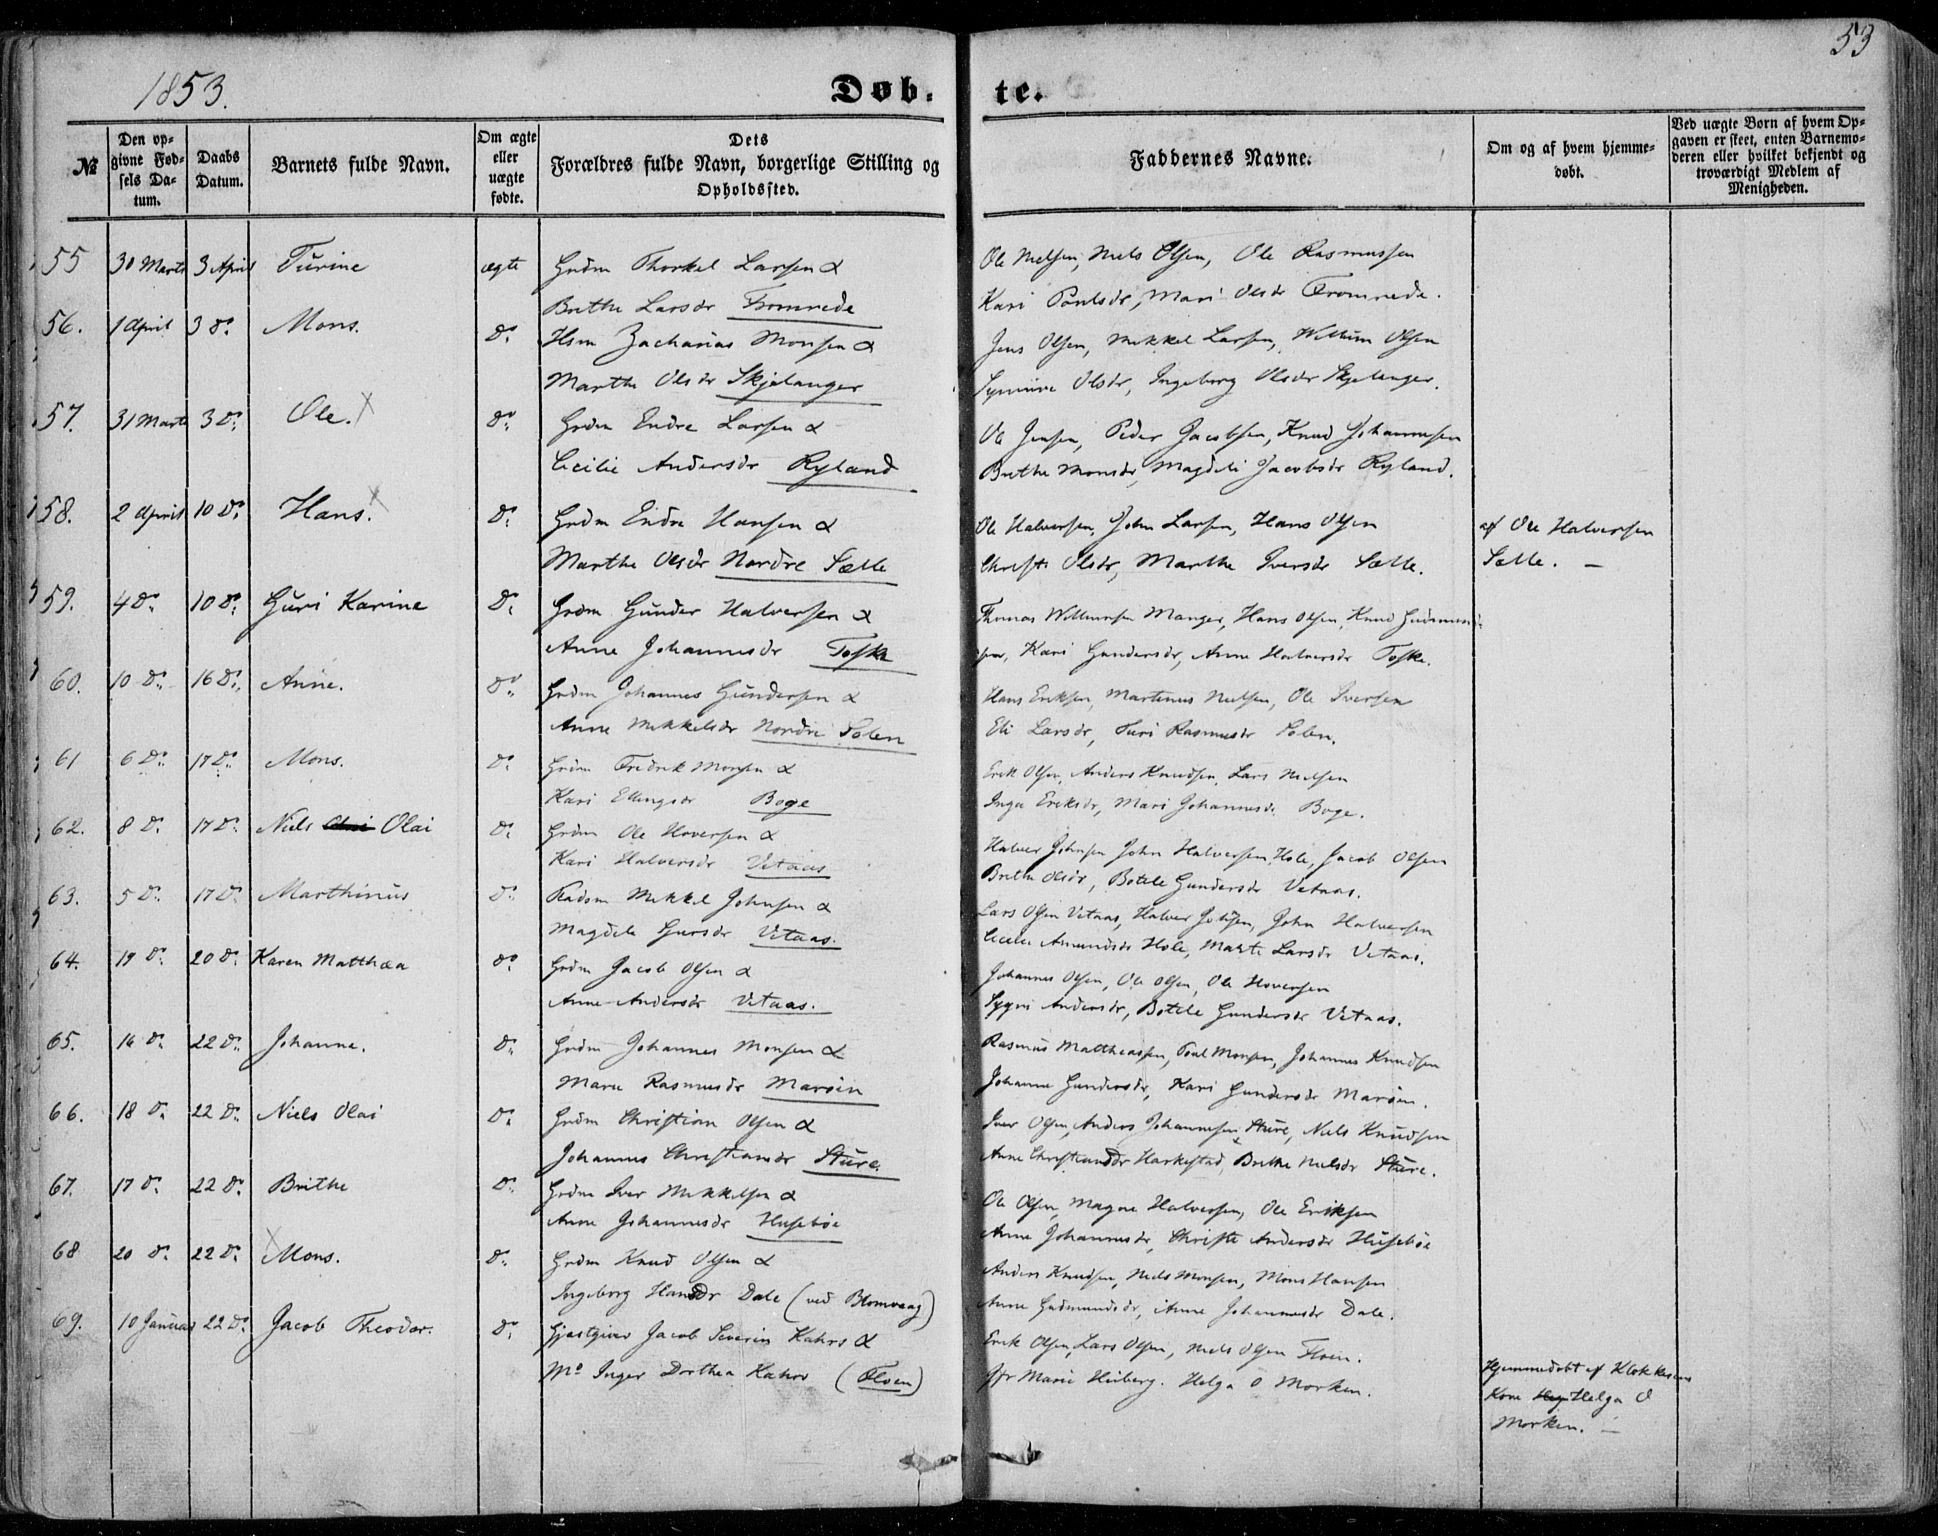 1853.
Døb-
te.
53
№
Den opgivne Fødsels Datum.
Daabs Datum.
Barnets fulde Navn.
Om ægte eller uægte fødte.
Dets Forældres fulde Navn, borgerlige Stilling og Opholdssted.
Faddernes Navne.
Om og af hvem hjemmedøbt.
Ved uægte Børn af hvem Opgaven er skeet, enten Barnemoderen eller hvilket bekjendt og troværdigt Medlem af Menigheden.
55 30 Marts 3 April Turine ægte Grdm Thorkel Larsen &
Brithe Larsdr Fromrede
Ole Nielsen, Niels Olsen, Ole Rasmussen
Kari Poulsdr, Mari Olsdr Fromrede.
56. 1 April 3 do. Mons. do. Hsm Zacharias Monsen &
Marthe Olsdr Skjelanger
Jens Olsen, Mikkel Larsen, Willum Olsen
Synnive Olsdr, Ingeborg Olsdr Skjelanger.
57. 31 Marts 3 do. Ole. do. Grdm Endre Larsen &
Cicilie Andersdr Ryland
Ole Jensen, Peder Jacobsen, Knud Johannesen
Brithe Monsdr, Magdeli Jacobsdr Ryland.
58. 2 April 10 do. Hans. do. Grdm Endre Hansen &
Marthe Olsdr Nordre Sætte
Ole Halvorsen, John Larsen, Hans Olsen
Christi Olsdr, Marthe Iversdr Sætte.
af Ole Halversen
Sætte. –
59. 4 do. 10 do. Guri Karine do. Grdm Gunder Halversen &
Anne Johannesdr Toska
Thomas Willumsen Manger, Hans Olsen, Knud Gudmund-
sen, Kari Gundersdr, Anne Halversdr Toske.
60. 10 do. 16 do. Anne. do. Grdm Johannes Gundersen &
Anne Mikkelsdr Nordre Solen
Hans Eriksen, Martinus Nielsen, Ole Iversen
Eli Larsdr, Turi Rasmusdr Solen.
61 6 do. 17 do. Mons. do. Grdm Fredrik Monsen &
Kari Ellingsdr Boge
Erik Olsen, Anders Knudsen, Lars Nielsen
Inga Eriksdr, Mari Johannesdr Boge.
62. 8 do. 17 do. Niels Olai do. Grdm Ole Hoversen &
Kari Halversdr Vetaas
Halver Johnsen John Halversen, Hole, Jacob Olsen
Brithe Olsdr, Botele Gundersdr Vetaas.
63. 5 do. 17 do. Marthinus do. Mikkel Johnsen &
Magdele Vetaas.
Lars Olsen Vetaas, Halver Johnsen, John Halversen
Cecilie Amundsdr Hole, Marte Larsdr Vetaas.
64. 19 do. 20 do. Karen Matthæa do. Grdm Jacob Olsen &
Anne Andersdr Vetaas.
Johannes Olsen, Ole Olsen, Ole Hoversen
Sygni Andersdr, Botele Gundersdr Vetaas.
65. 16 do. 22 do. Johanne. do. Grdm Johannes Monsen &
Mari Rasmusdr Marøen
Rasmus Mattheasen, Poul Monsen, Johannes Knudsen
Johanne Gundersdr, Kari Gundersdr Marøen.
66. 18 do. 22 do. Niels Olai do. Grdm Christian Olsen &
Johannes Christiansdr Sture.
Iver Olsen, Anders Johannesen Sture, Niels Knudsen
Anne Christiansdr Harkestad, Brithe Nielsdr Sture.
67. 17 do. 22 do. Brithe do. Grdm Iver Mikkelsen &
Anne Johannesdr Husebøe
Ole Olsen, Magne Halversen, Ole Eriksen
Anne Johannesdr, Christi Andersdr Husebøe
68 20 do. 22 do. Mons. do. Grdm Knud Olsen &
Ingeborg Hansdr Dale (ved Blomvaag)
Anders Knudsen, Niels Monsen, Mons Hansen
Anne Gudmundsdr, Anne Johannesdr Dale.
69. 10 Januar 22 do. Jacob Theodor. do. Gjæstgiver Jacob Severin Kahrs &
Md Inger Dorthea Kahrs (Floen)
Erik Olsen, Lars Olsen, Niels Olsen Floen.
Jfr Marie Heiberg. Helga O Morken.
Hjemmedøbt af Klokkerens
Kone Helga O
Morken. –